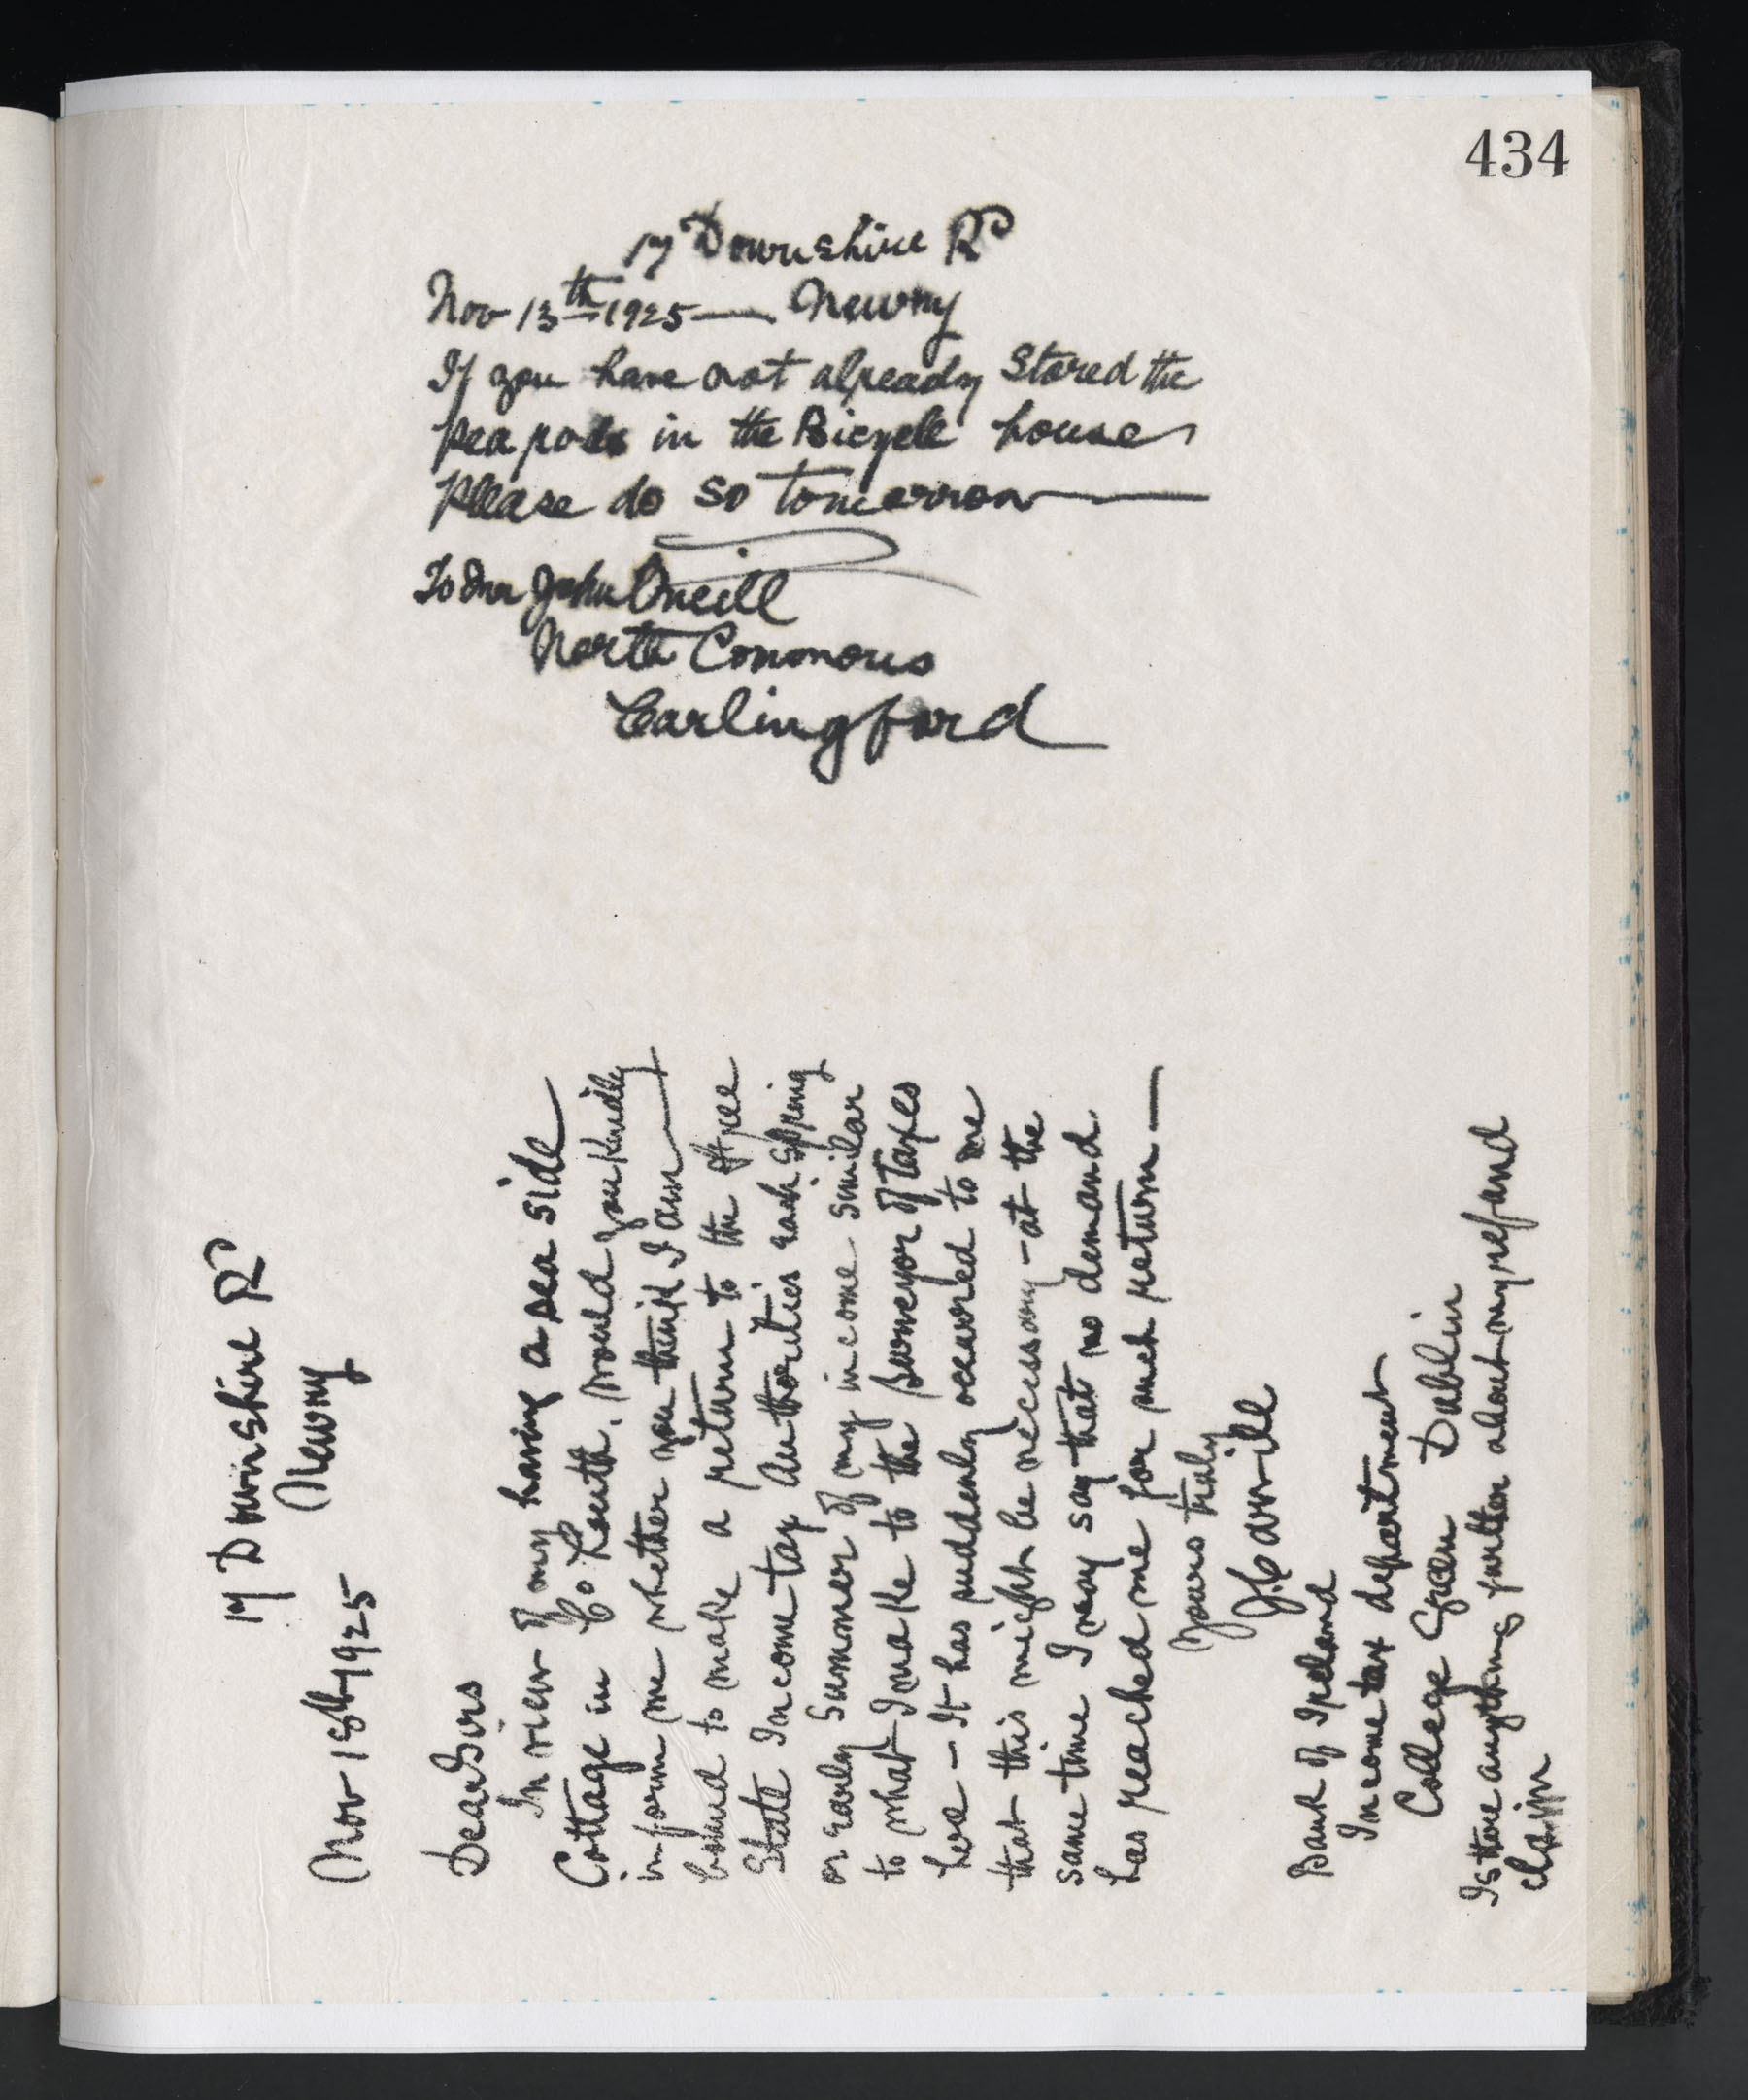 434
17 Downshire Rd
Nov 13th 1925 — Newry
If you have not already stored the
pea pods in the Bicycle house
Please do so tomorrow —
To Mr John Oneill
North Commons
Carlingford
17 Downshire Rd
Newry
Nov 15th 1925
Dear Sirs
In view of my having a sea side
Cottage in Co Louth, would you kindly
inform me whether you think I am
bound to make a return to the Free
State Income tax Authorities each Spring
or early Summer of my income similar
to what I make to the Surveyor of taxes
here – It has suddenly occurred to me
that this might be necessary – at the
same time I may say that no demand
has reached me for such return —
Yours truly
J Carvill
Bank of Ireland
Income tax department
College Green Dublin
Is there anything further about my refund
claim